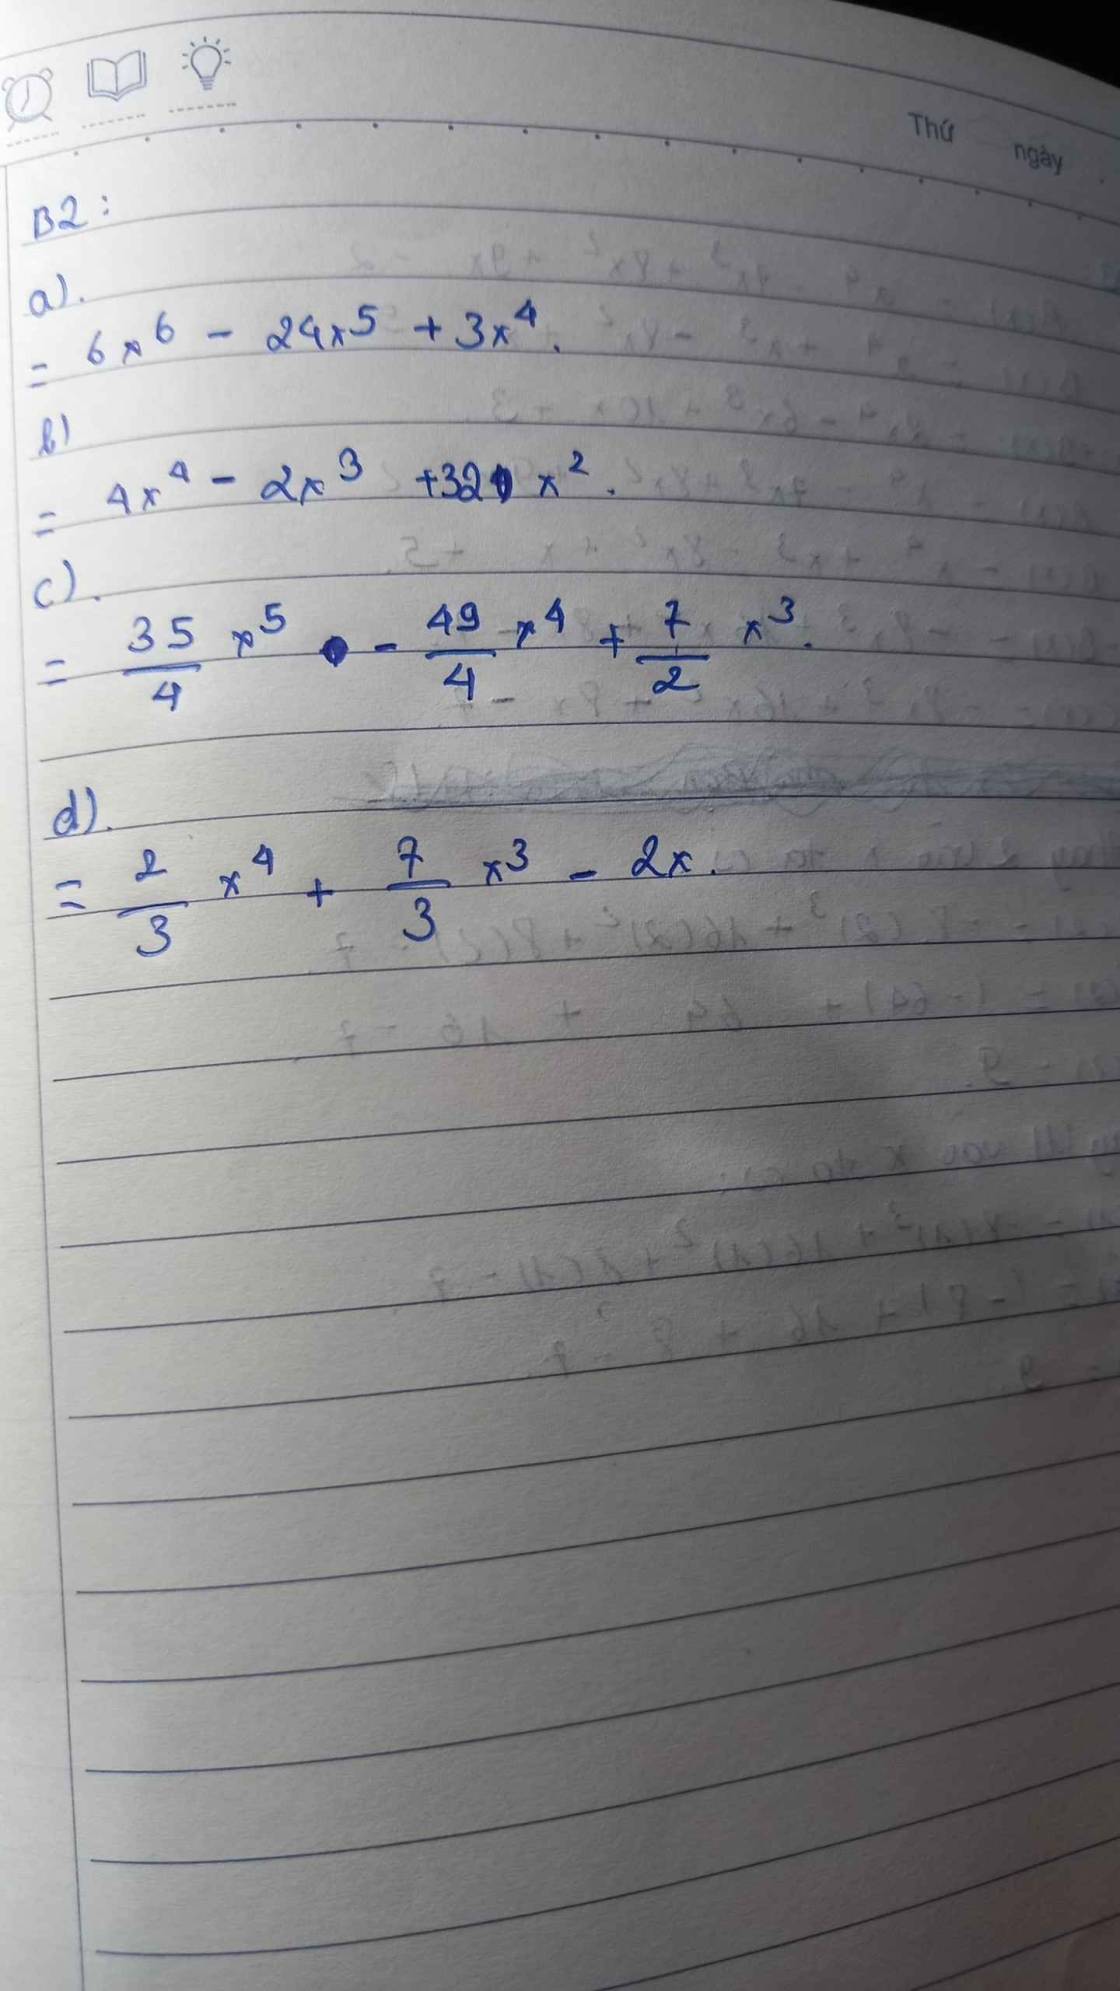 Thứ ngày
B2:
a).
= 6x⁶ - 24x⁵ + 3x⁴.
b)
= 4x⁴ - 2x³ +32 x².
c).
= 35/4 x⁵ - 49/4 x⁴ + 7/2 x³.
d).
= 2/3 x⁴ + 7/3 x³ - 2x.